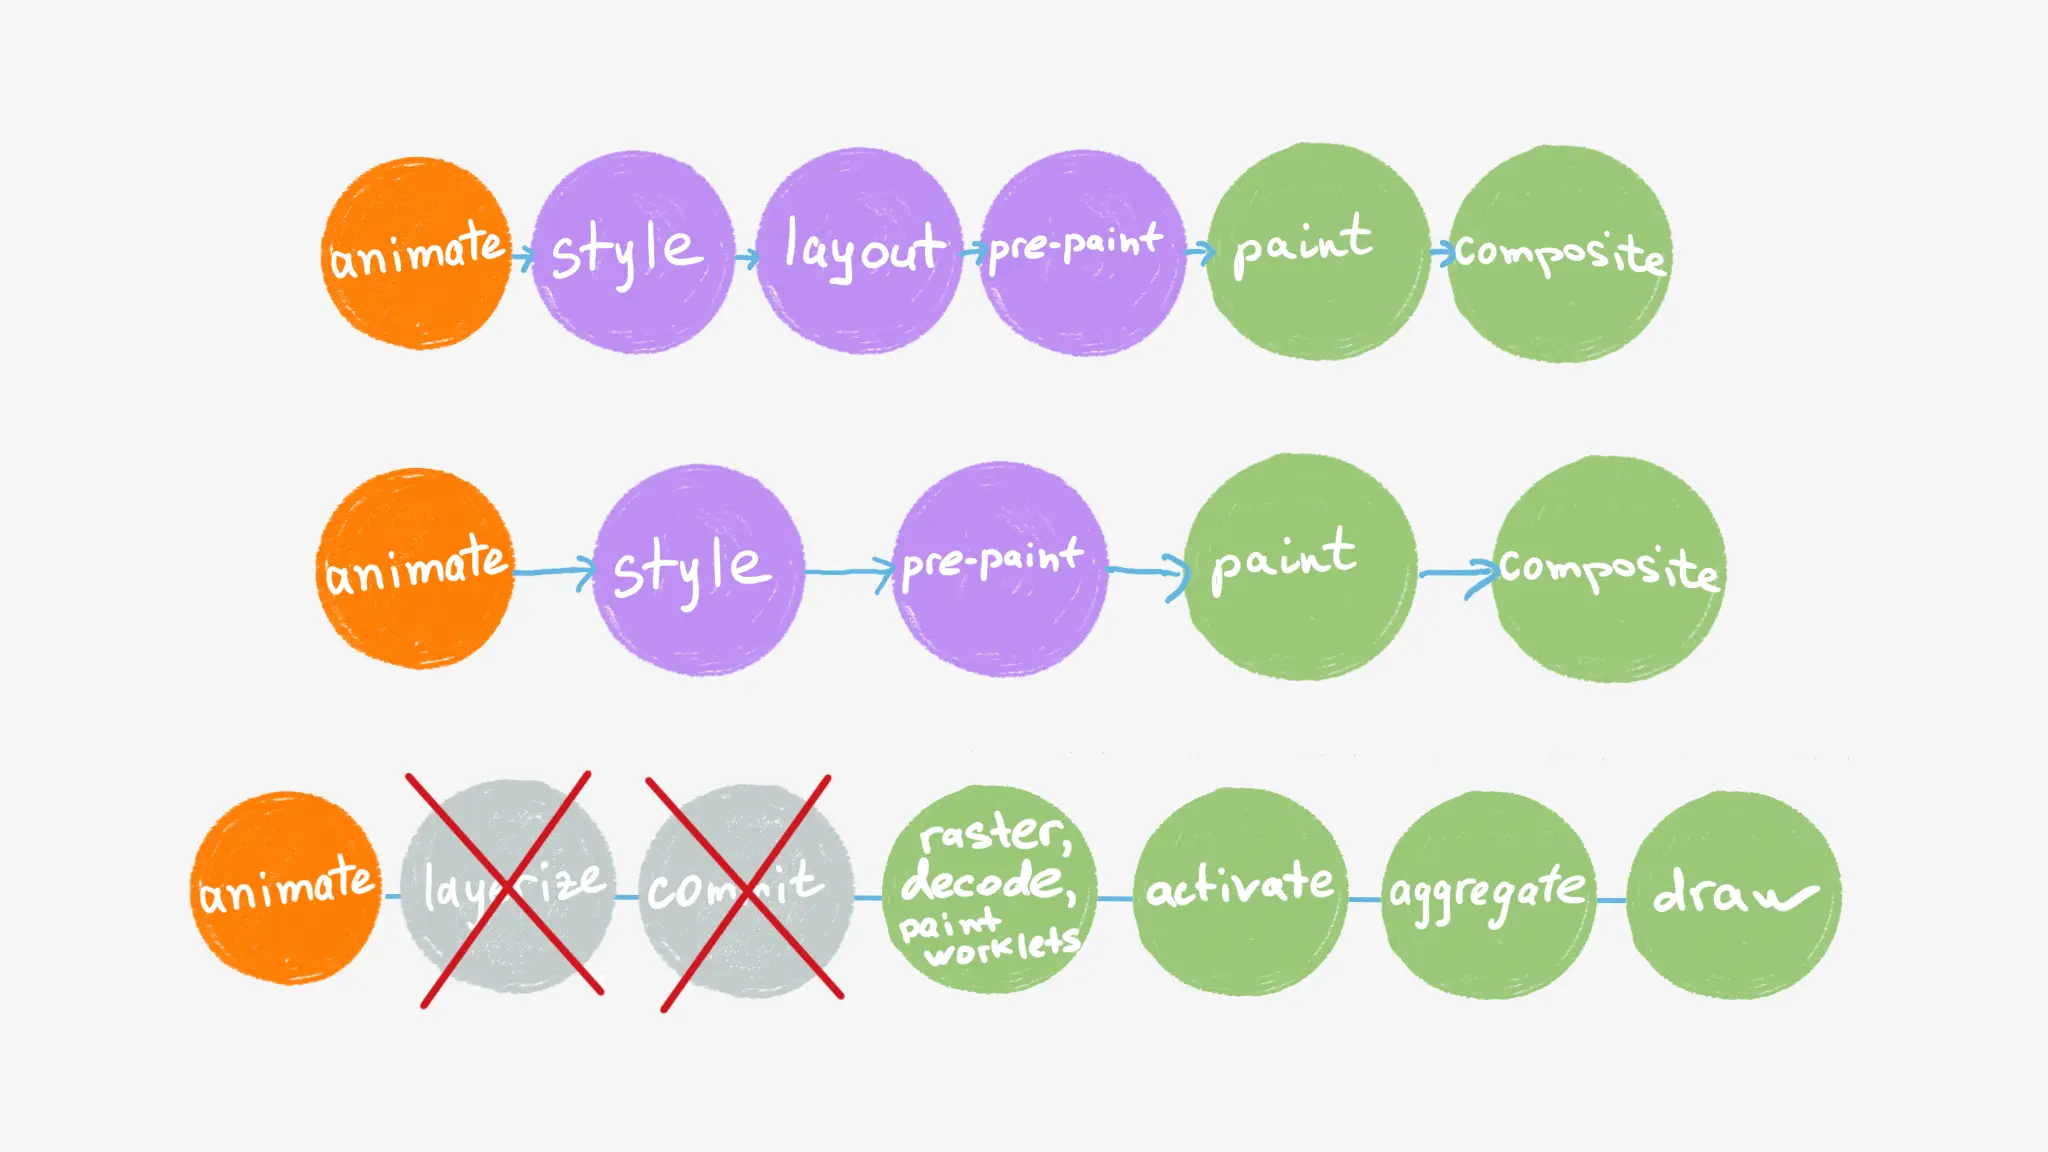 animate style layout pre-paint paint composite
animate style pre-paint paint composite
animate layerize commit raster, decode, paint worklets activate aggregate draw